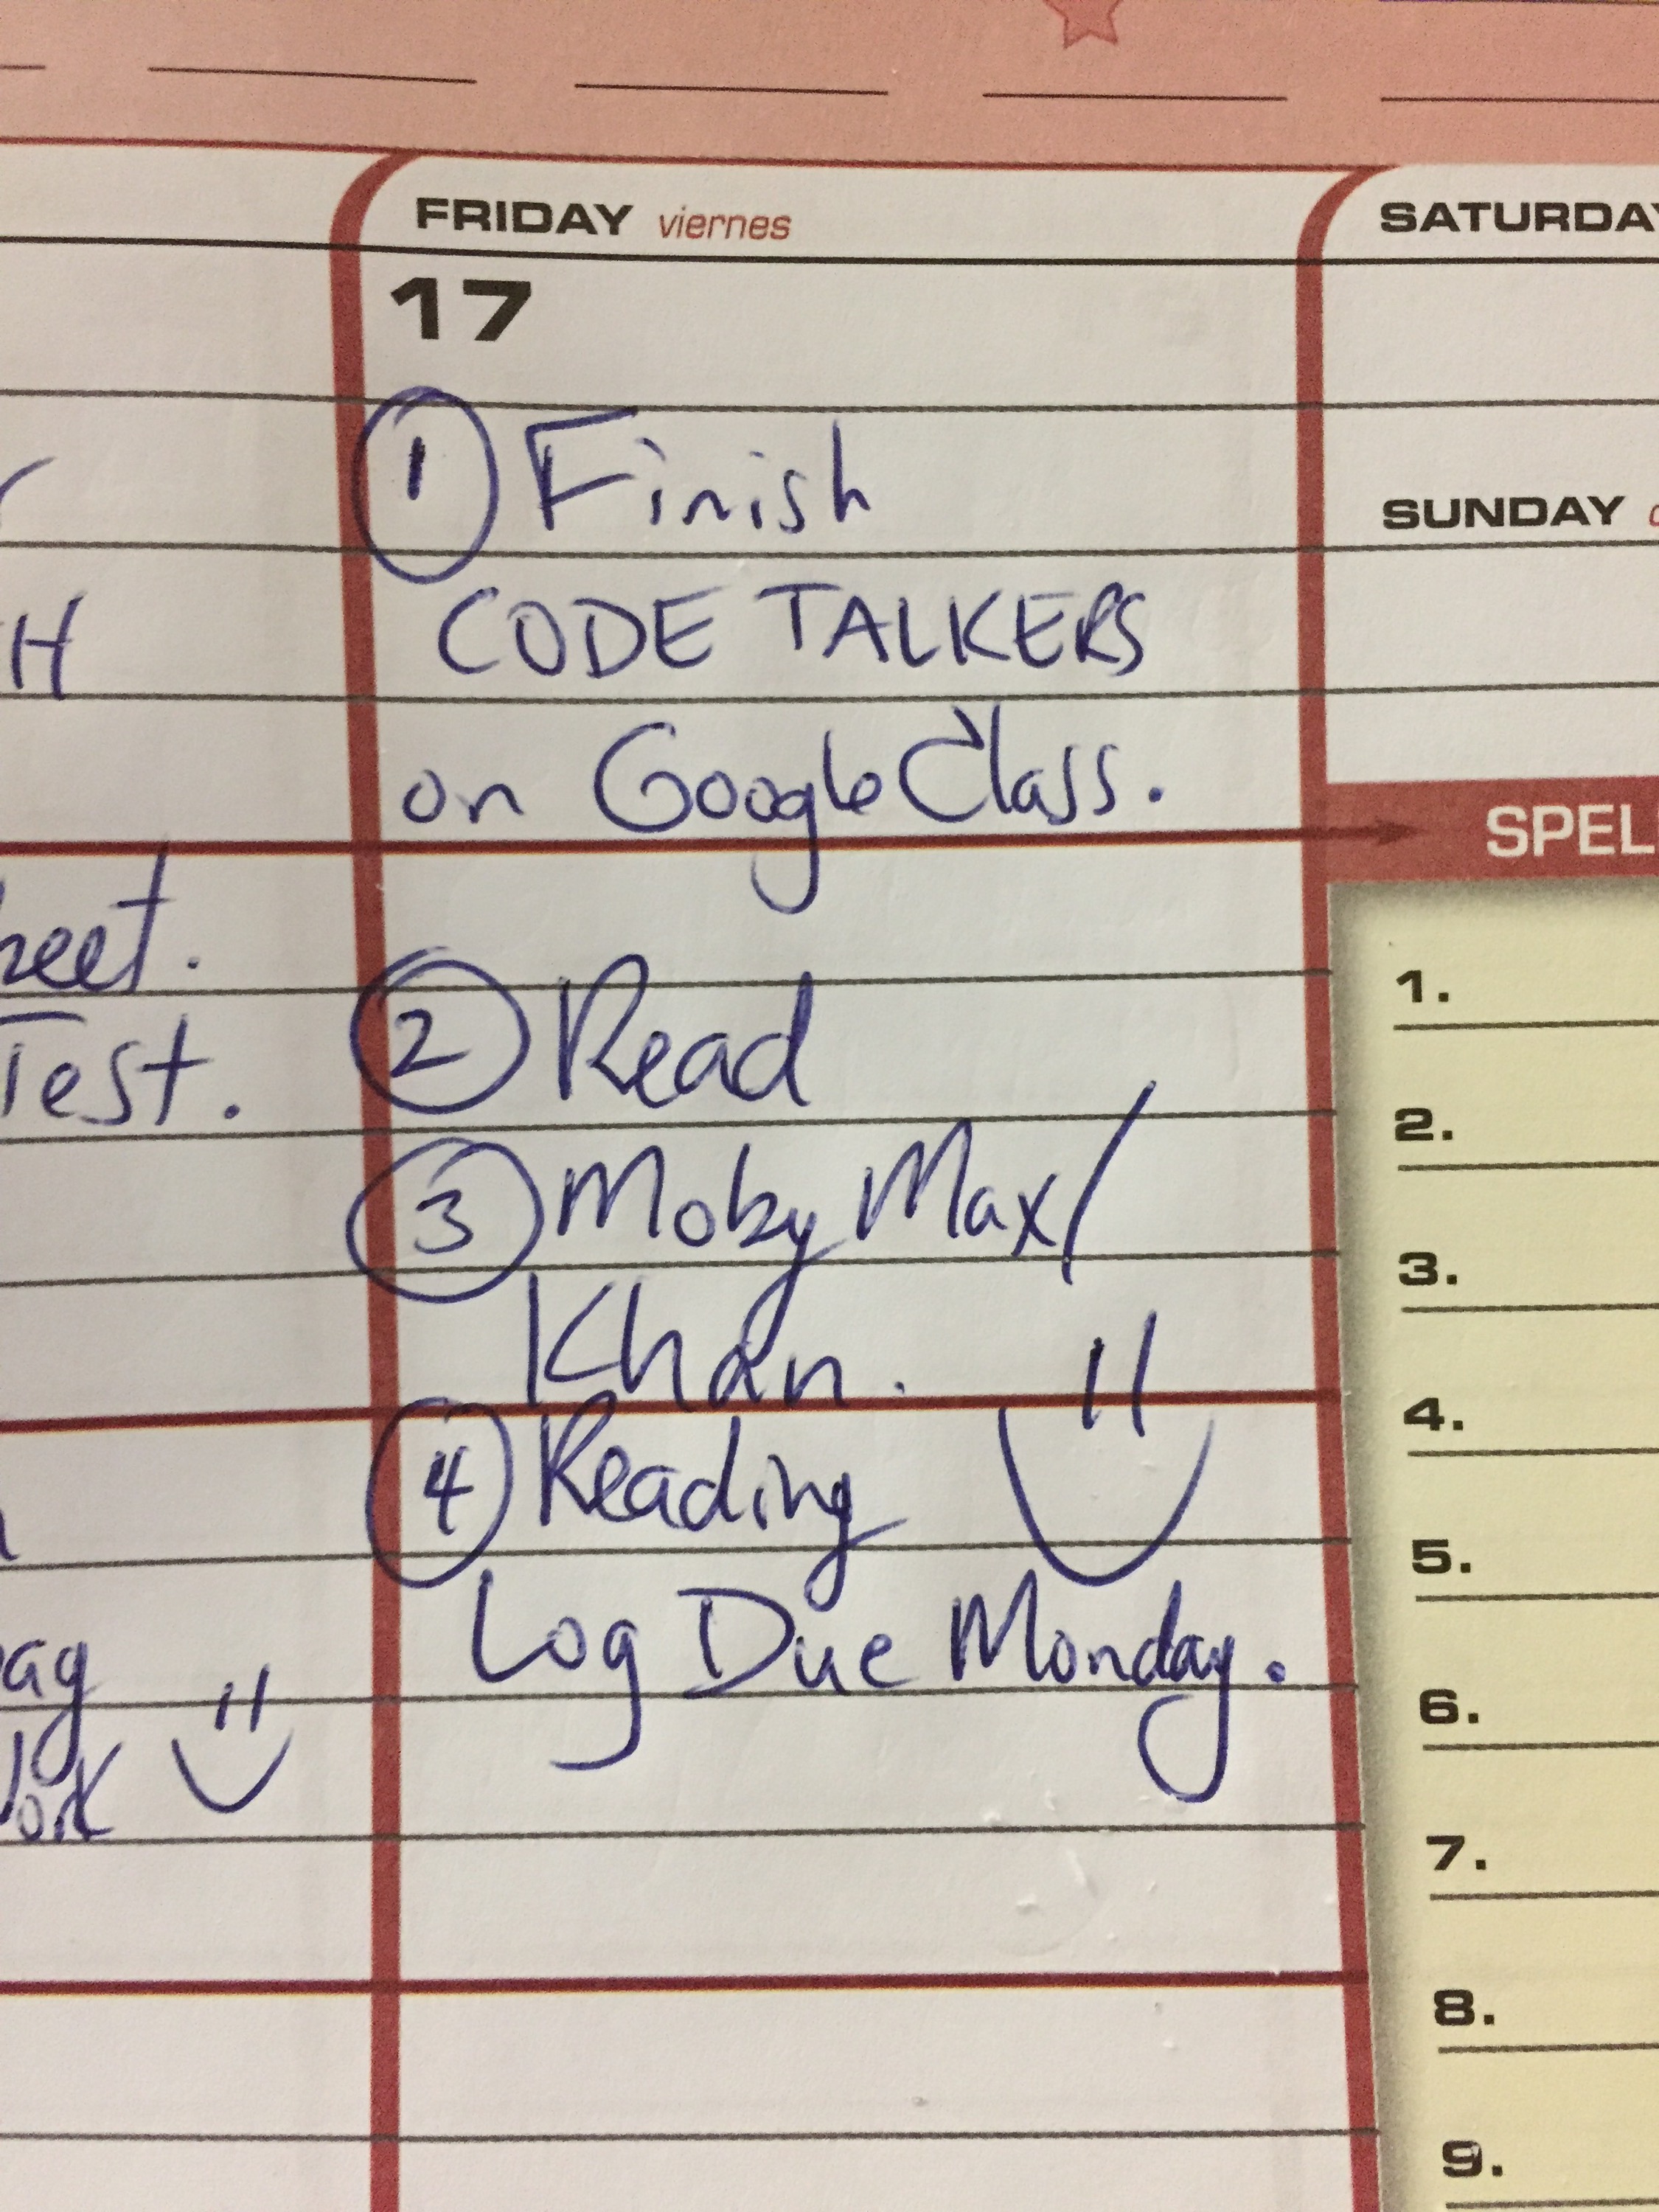 FRIDAY viernes
17
① Finish
CODE TALKERS
on Google Class.
② Read
③ Moby Max/
Khan.
④ Reading
Log Due Monday.
H
heet.
Test.
ag
Work
SATURDAY
SUNDAY
SPEL
1.
2.
3.
4.
5.
6.
7.
8.
9.